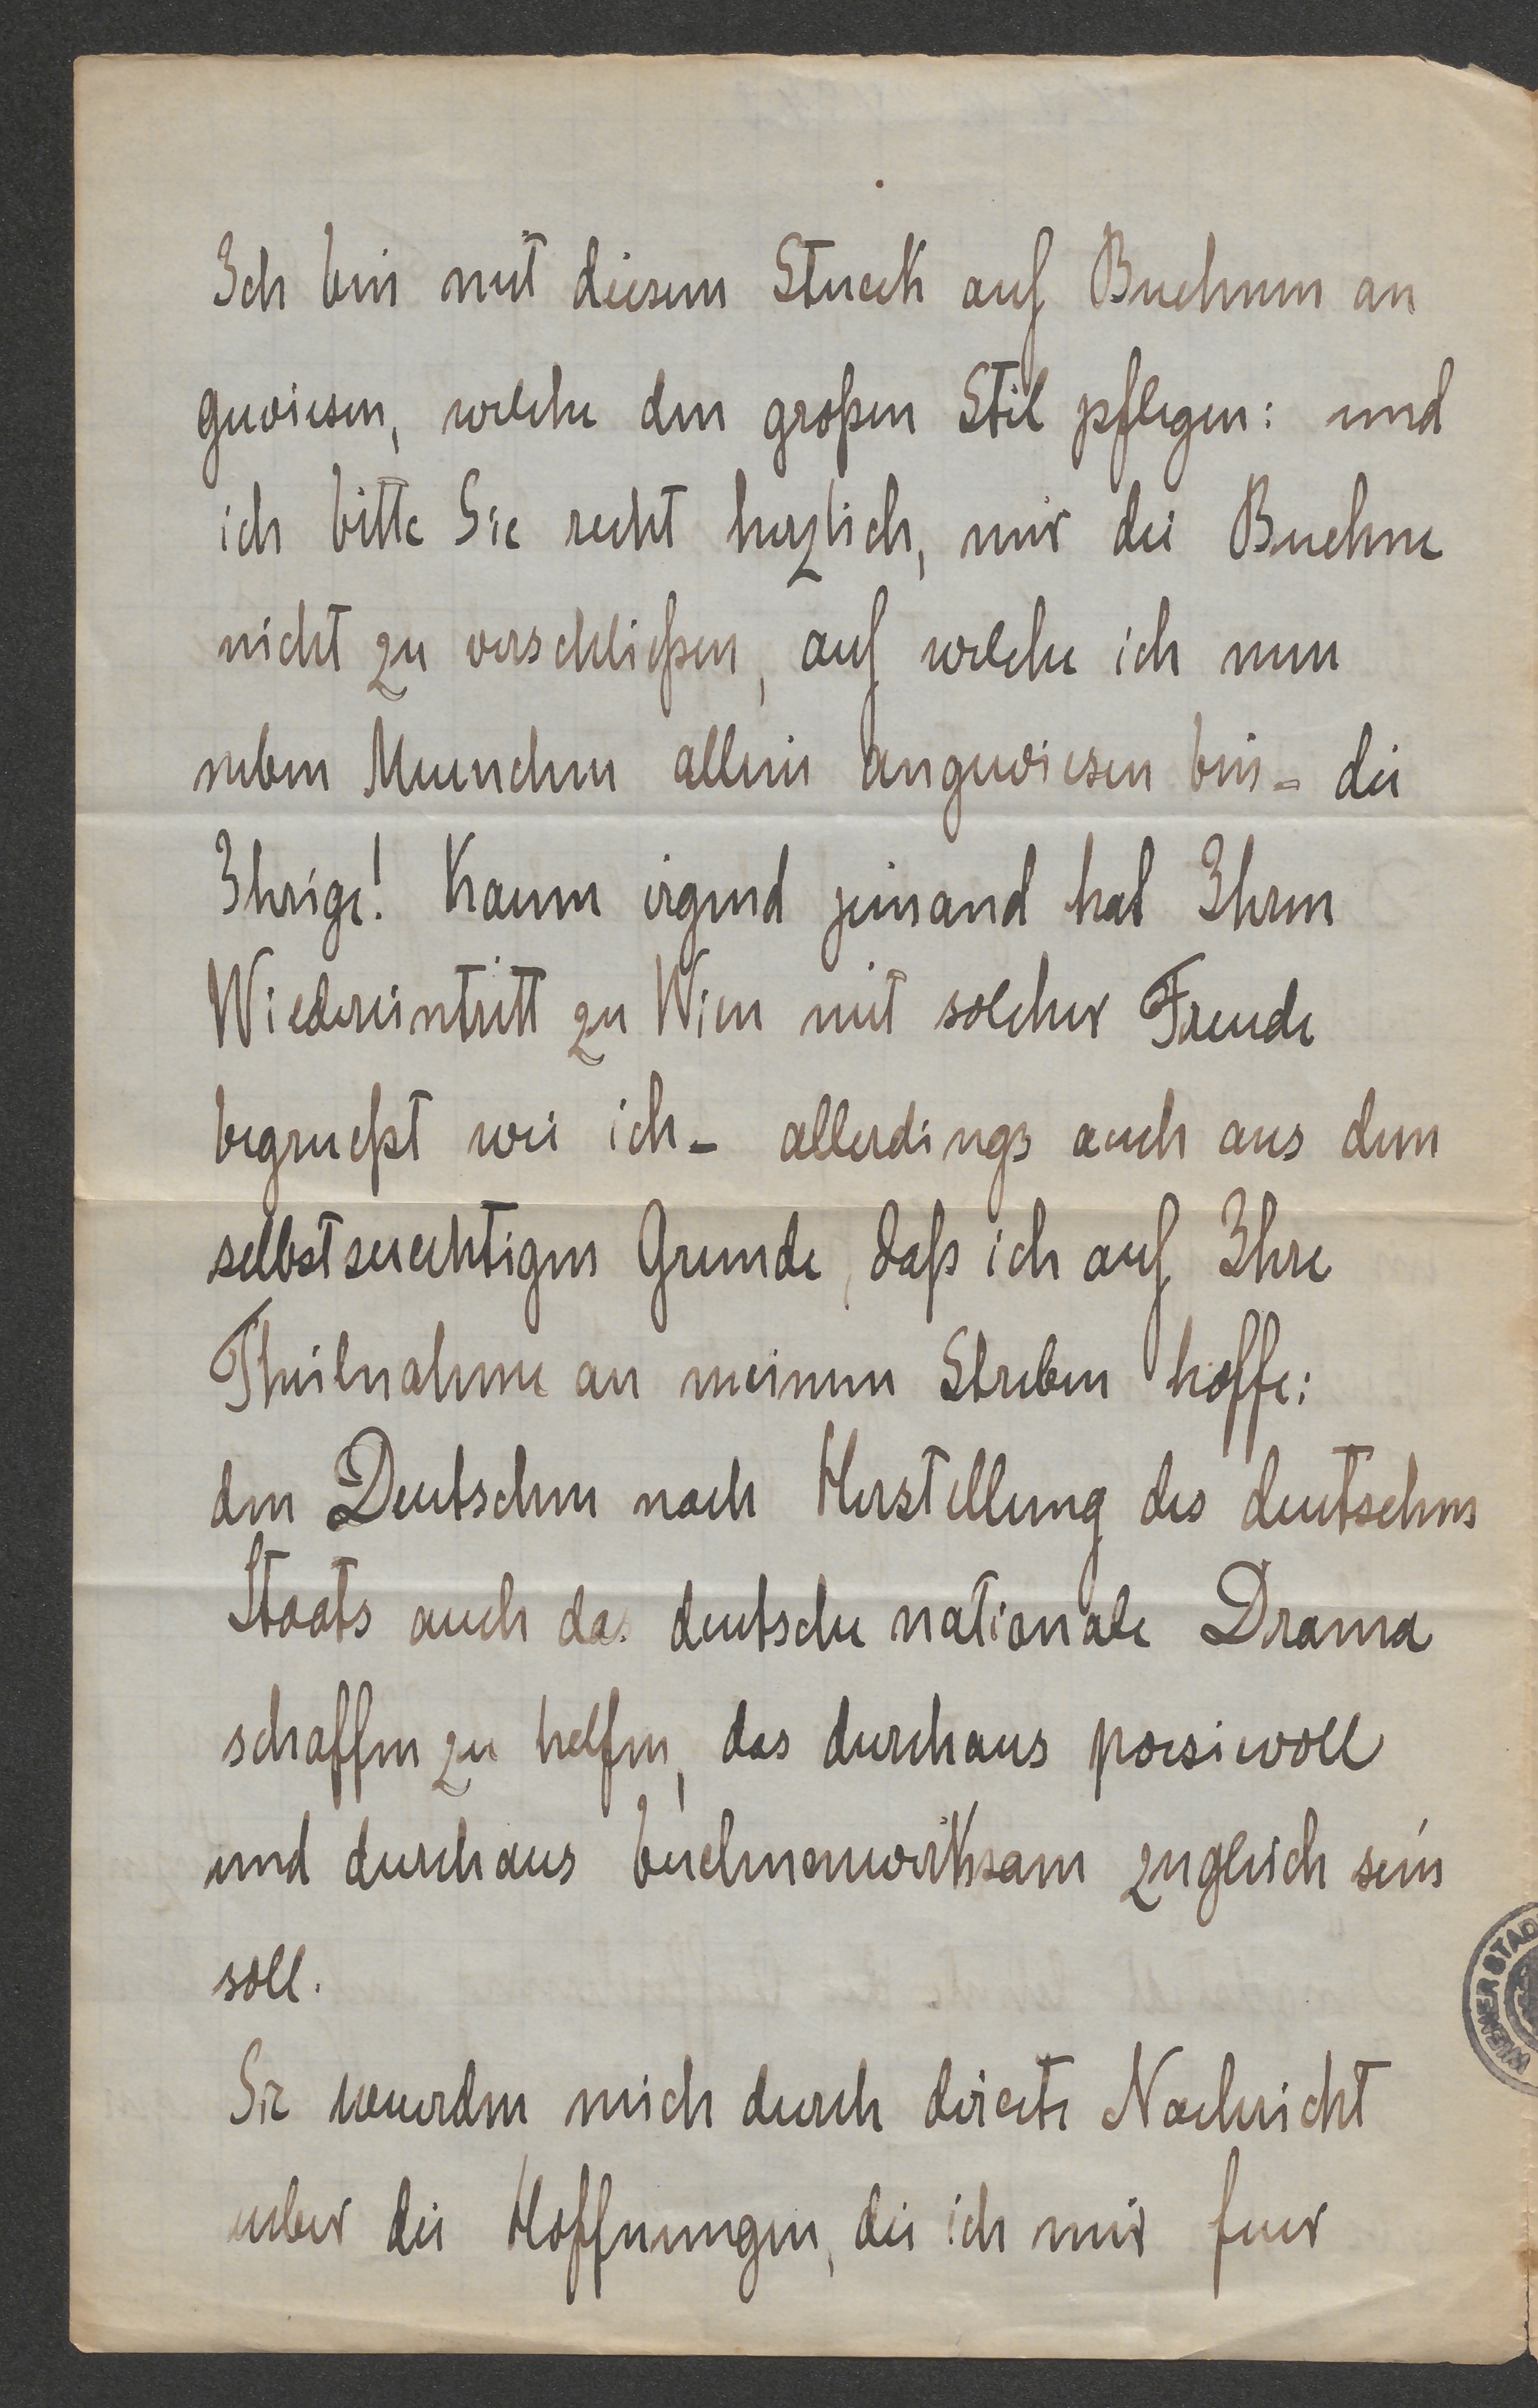 Ich bin mit diesem Stueck auf Buehnen an
gewiesen, welche den großen Stil pflegen: und
ich bitte Sie recht herzlich, mir die Buehne
nicht zu verschließen, auf welche ich nun
neben Muenchen allein angewiesen bin - die
Ihrige! Kaum irgend jemand hat Ihren
Wiedereintritt zu Wien mit solcher Freude
begrueßt wie ich - allerdings auch aus dem
selbstsuechtigen Grunde, daß ich auf Ihre
Theilnahme an meinem Streben hoffe:
den Deutschen nach Herstellung des deutschen
Staats auch das deutsche nationale Drama
schaffen zu helfen, das durchaus poesievoll
und durchaus buehnenwirksam zugleich sein
soll.
Sie wuerden mich durch directe Nachricht
ueber die Hoffnungen, die ich mir fuer
WIENER STAD